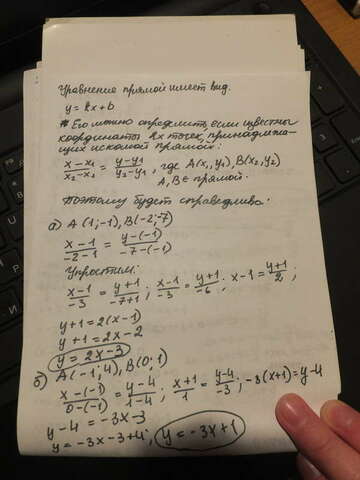 Уравнение прямой имеет вид.
y = kx + b
Его можно определить, если известны
координаты 2х точек, принадлежа-
щих искомой прямой:
x-x₁/x₂-x₁ = y-y₁/y₂-y₁, где A(x₁, y₁), B(x₂, y₂)
A, B ∈ прямой.
Поэтому будет справедливо:
а) A(1;-1), B(-2;-7)
x-1/-2-1 = y-(-1)/-7-(-1)
Упростим:
x-1/-3 = y+1/-7+1; x-1/-3 = y+1/-6; x-1 = y+1/2;
y+1 = 2(x-1)
y+1 = 2x-2
y = 2x-3
б) A(-1;4), B(0;1)
x-(-1)/0-(-1) = y-4/1-4; x+1/1 = y-4/-3; -3(x+1) = y-4
y-4 = -3x-3
y = -3x-3+4; y = -3x+1